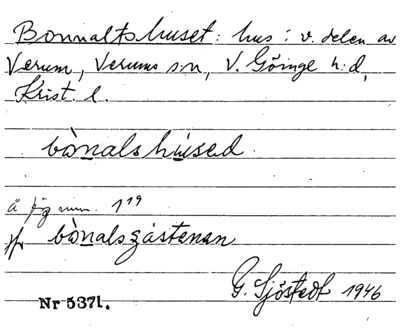 Bonnaltshuset: hus i v. delen av
Verum, Verums sn, V. Göinge h:d,
Krist. l.
bònalshúsed.
å fig num. 1¹⁹
jfr bònalsgástenan
G. Sjöstedt 1946
Nr 5371.